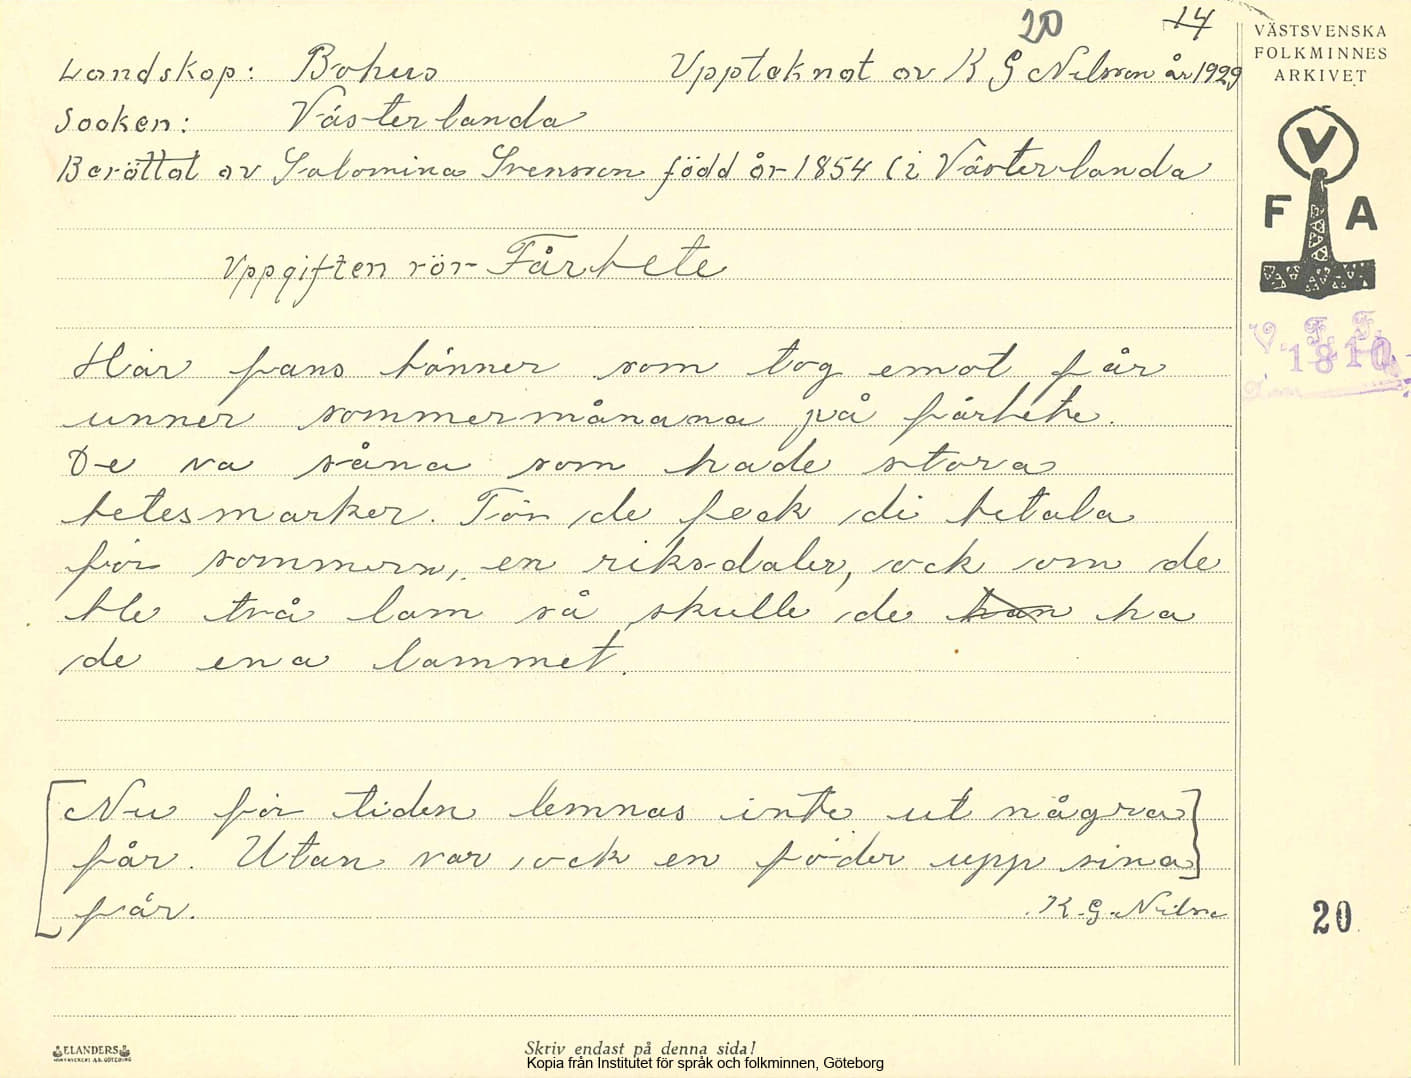 20 14
Landskap: Bohus Uppteknat av K G Nilsson år 1929
Socken: Västerlanda
Berättat av Salomina Svensson född år 1854 (i Västerlanda
Uppgiften rör Fårbete
Här fans bönner som tog emot får
unner sommermånana på fårbete.
De va såna som hade stora
betesmarker. För de feck di betala
för sommern, en riksdaler, ock om de
ble två lam så skulle de han ha
de ena lammet.
Nu för tiden lemnas inte ut några
får. Utan var ock en föder upp sina
får. K. G. Nilsn
VÄSTSVENSKA
FOLKMINNES
ARKIVET
V
F A
V. F. F.
1810
20
ELANDERS
Skriv endast på denna sida!
Kopia från Institutet för språk och folkminnen, Göteborg